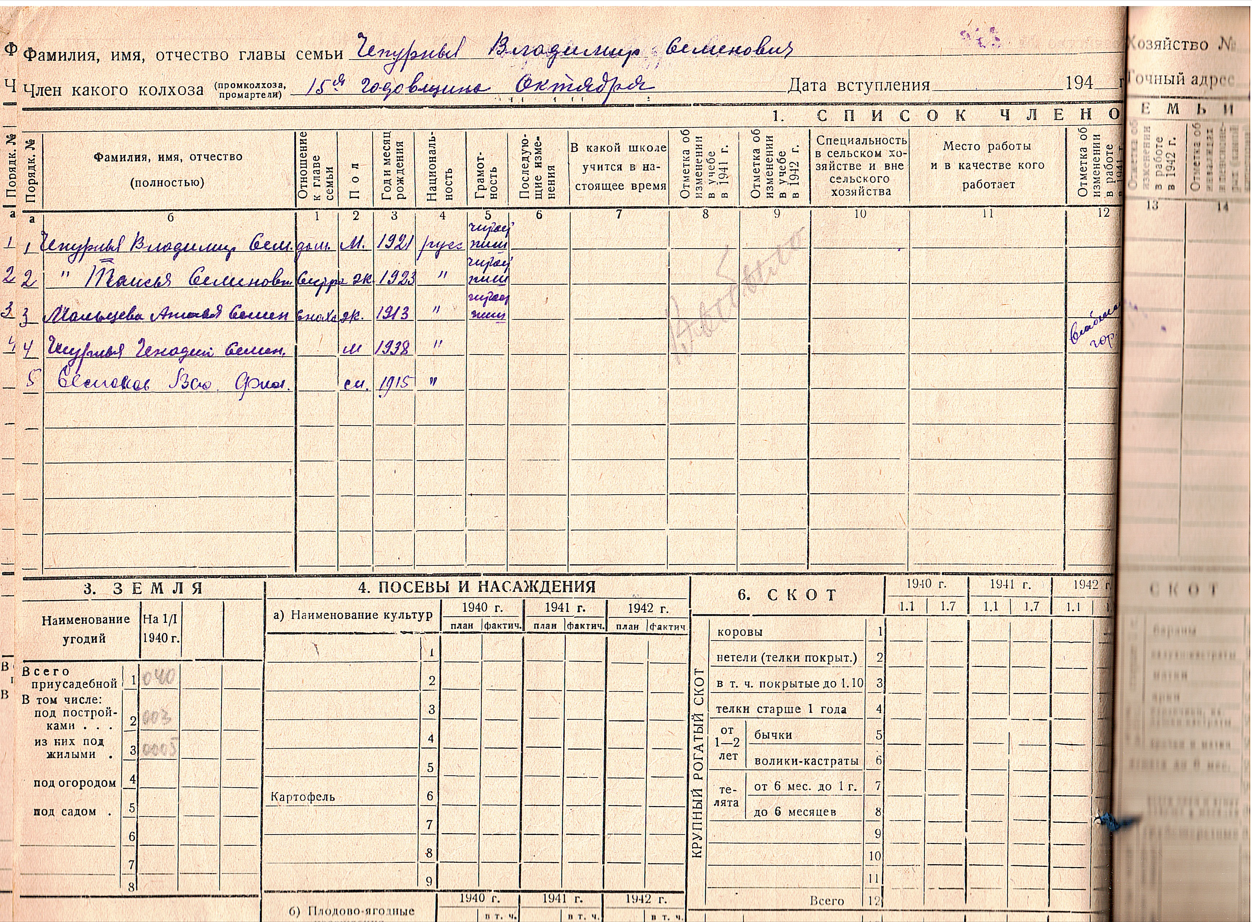 Фамилия, имя, отчество главы семьи Чепурный Владимир Семенович
Член какого колхоза (промколхоза, промартели) 15ая годовщина Октября Дата вступления 194 г
Хозяйство №
Точный адрес
1. СПИСОК ЧЛЕНО
ЕМЬИ
Порядк. № Порядк. № Фамилия, имя, отчество (полностью) Отношение к главе семьи Пол Год и месяц рождения Националь-ность Грамот-ность Последую-щие изме-нения В какой школе учится в на-стоящее время Отметка об изменении в учебе в 1941 г. Отметка об изменении в учебе в 1942 г. Специальность в сельском хо-зяйстве и вне сельского хозяйства Место работы и в качестве кого работает Отметка об изменении в работе в 1941 г. Отметка об изменении в работе в 1942 г. Отметка об
а а б 1 2 3 4 5 6 7 8 9 10 11 12 13 14
1 1 Чепурный Владимир Сем. М. 1921 русс
2 2 " Таисья Семиновн сестра жк 1923 "
3 3 Мальцева Семен жк. 1913 "
4 4 Генадий Семен. м 1938 "
5 1915 "
Выбыло
3. ЗЕМЛЯ
Наименование угодий На 1/I 1940 г.
Всего приусадебной 1 040
В том числе:
под построй-ками . . . 2 003
из них под жилыми . 3 0005
под огородом 4
под садом . 5
6
7
8
4. ПОСЕВЫ И НАСАЖДЕНИЯ
а) Наименование культур 1940 г. 1941 г. 1942 г.
план фактич. план фактич. план фактич.
1
2
3
4
5
Картофель 6
7
8
9
б) Плодово-ягодные 1940 г. 1941 г. 1942 г.
в т. ч. в т. ч. в т. ч.
6. СКОТ 1940 г. 1941 г. 1942 г
1.1 1.7 1.1 1.7 1.1
КРУПНЫЙ РОГАТЫЙ СКОТ
коровы 1
нетели (телки покрыт.) 2
в т. ч. покрытые до 1.10 3
телки старше 1 года 4
от 1—2 лет бычки 5
волики-кастраты 6
те-лята от 6 мес. до 1 г. 7
до 6 месяцев 8
9
10
11
Всего 12
СКОТ